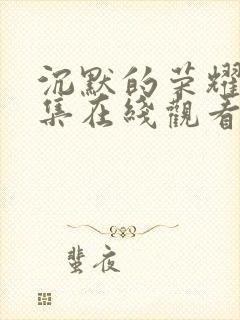 沉默的荣耀
集在线觀看
蜚夜